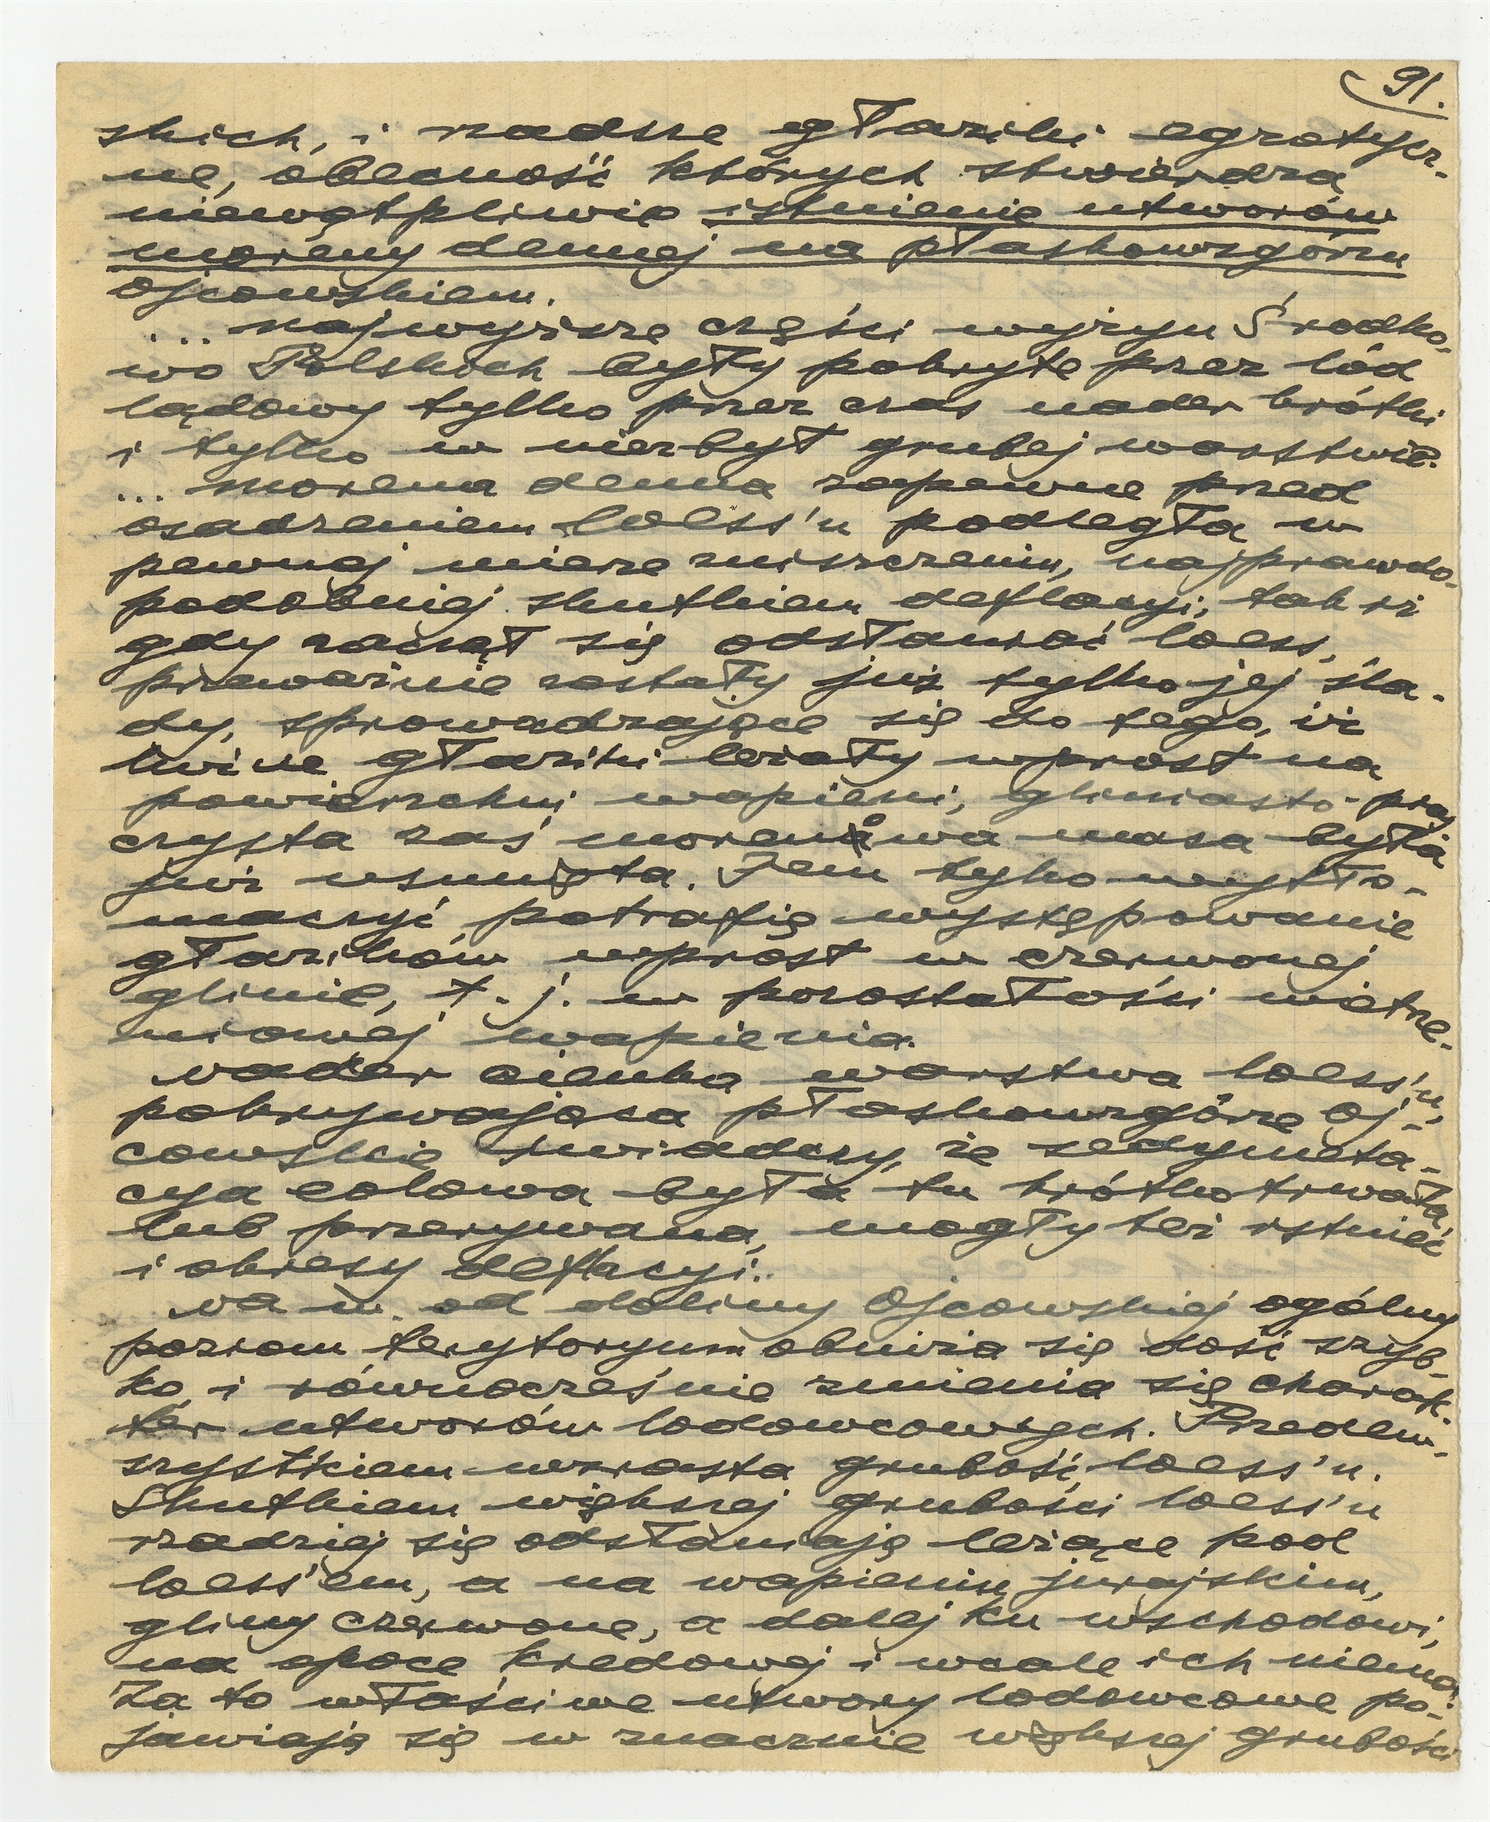 91.
skich, i rzadsze głaziki egzotycz-
ne, obecność których stwierdza
niewątpliwie istnienie utworów
moreny dennej na płaskowzgórzu
Ojcowskiem.
... najwyższe części wyżyn Środko-
wo Polskich były pokryte przez lód
lądowy tylko przez czas nader krótki
i tylko w niezbyt grubej warstwie.
... morena denna zapewne przed
osadzeniem loess'u podległa w
pewnej mierze zniszczeniu, najprawdo-
podobniej skutkiem deflacyi, tak iż
gdy zaczął się odsławiać loess,
przeważnie zostały już tylko jej śla-
dy, sprowadzające się do tego, iż
luźne głaziki leżały wprost na
powierzchni wapieni, gliniasto-pia
czysta zaś morenowa masa była
już usunięta. Tem tylko wytło-
maczyć potrafię występowanie
głazików wprost w czerwonej
glinie, t. j. w pozostałości wietrze-
niowej wapienia.
Nader cienka warstwa loess'u,
pokrywająca płaskowzgórze Oj-
cowskie świadczy, że sedymenta-
cya eolowa była tu krótkotrwała,
lub przerywana, mogły też istnieć
i okresy deflacyi.
Na w. od doliny Ojcowskiej ogólny
poziom terytoryum obniża się dość szyb-
ko, i równocześnie zmienia się charak-
ter utworów lodowcowych. Przedew-
szystkiem wzrasta grubość loess'u.
Skutkiem większej grubości loess'u
rzadziej się odsłaniają leżące pod
loess'em, a na wapieniu jurajskim,
gliny czerwone, a dalej ku wschodowi,
na opoce kredowej i wcale ich niema.
Za to właściwe utwory lodowcowe po-
jawiają się w znacznie większej grubości